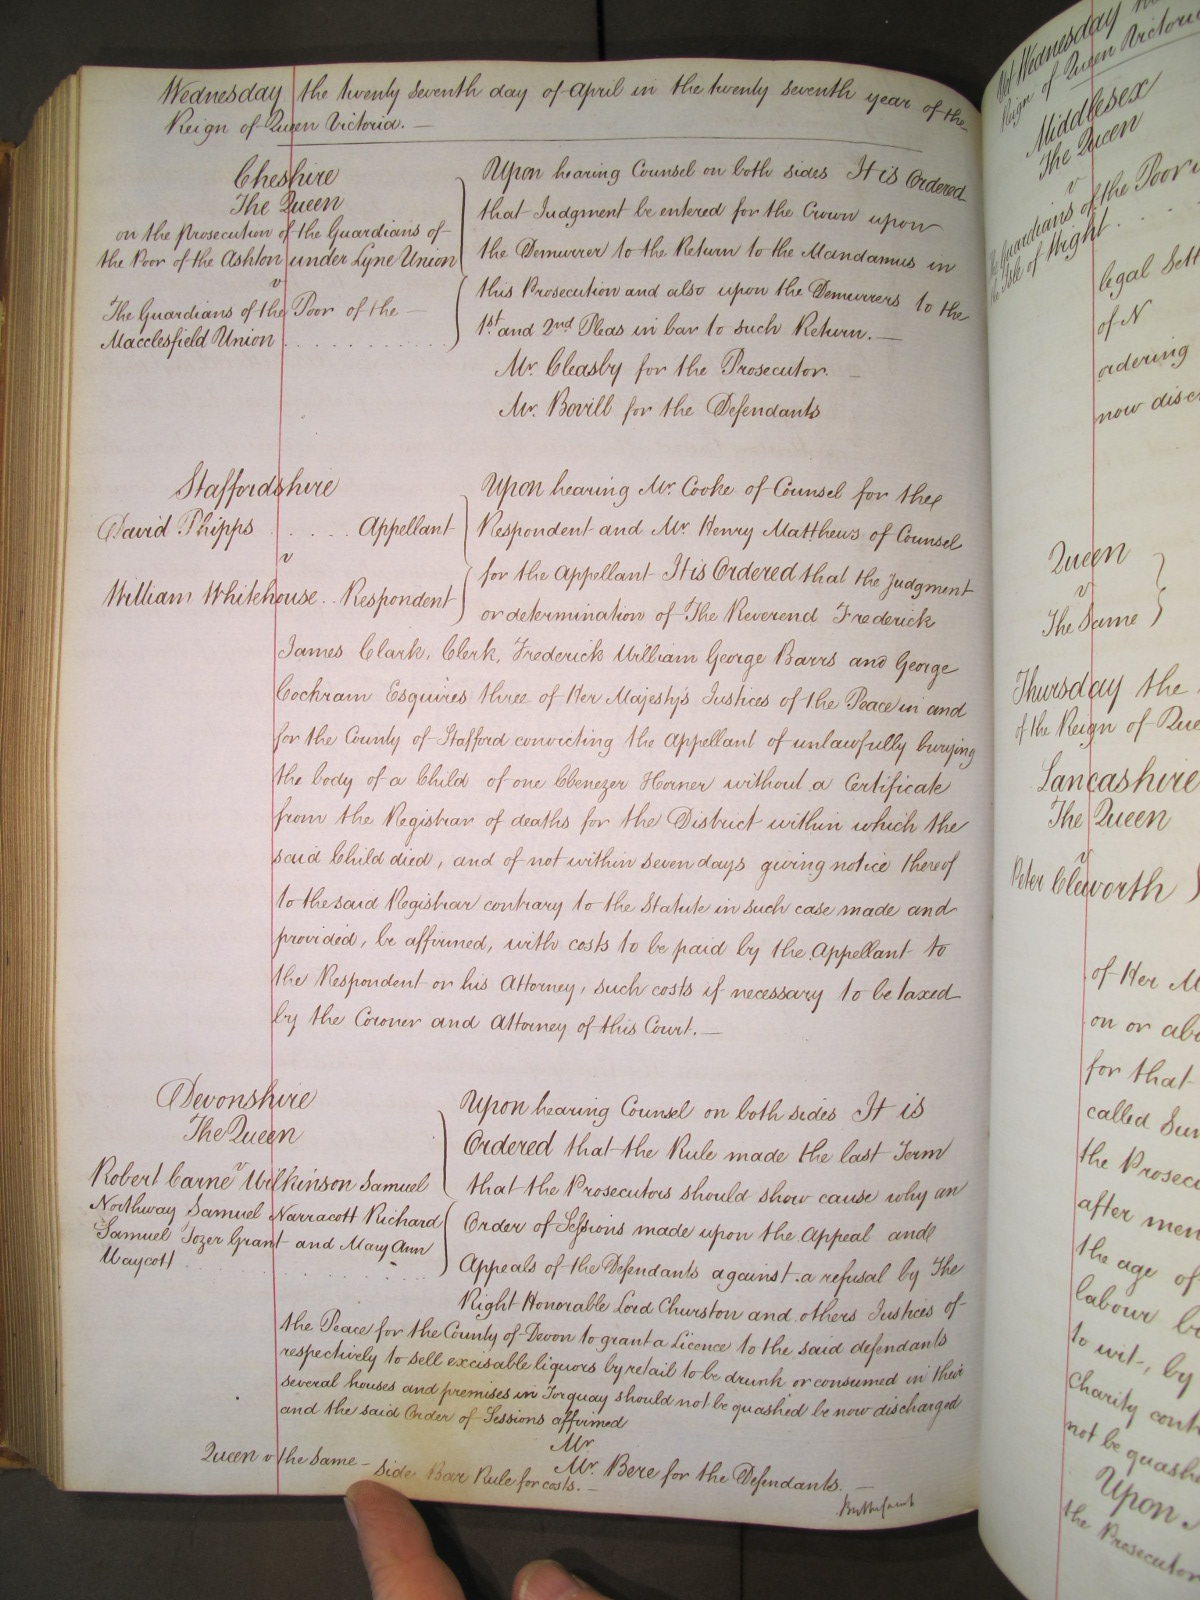 Wednesday the twenty seventh day of April in the twenty seventh year of the
Reign of Queen Victoria. —
Cheshire
The Queen
on the prosecution of the Guardians of
the Poor of the Ashton under Lyne Union
v
The Guardians of the Poor of the —
Macclesfield Union . . . . . . . . . .
Upon hearing Counsel on both sides It is Ordered
that Judgment be entered for the Crown upon
the Demurrer to the Return to the Mandamus in
this Prosecution and also upon the Demurrers to the
1st and 2nd Pleas in bar to such Return. —
Mr. Cleasby for the Prosecutor. —
Mr. Bovill for the Defendants
Staffordshire
David Phipps . . . . . Appellant
v
William Whitehouse . . Respondent
Upon hearing Mr. Cooke of Counsel for the
Respondent and Mr. Henry Matthews of Counsel
for the Appellant It is Ordered that the Judgment
or determination of The Reverend Frederick
James Clark, Clerk, Frederick William George Barrs and George
Cochram Esquires three of Her Majesty's Justices of the Peace in and
for the County of Stafford convicting the Appellant of unlawfully burying
the body of a Child of one Ebenezer Horner without a Certificate
from the Registrar of deaths for the District within which the
said Child died, and of not within seven days giving notice thereof
to the said Registrar contrary to the Statute in such case made and
provided, be affirmed, with costs to be paid by the Appellant to
the Respondent or his Attorney, such costs if necessary to be taxed
by the Coroner and Attorney of this Court. —
Devonshire
The Queen
v
Robert Carne Wilkinson Samuel
Northway Samuel Narracott Richard
Samuel Tozer Grant and Mary Ann
Waycott . . . . . . . . . .
Upon hearing Counsel on both sides It is
Ordered that the Rule made the last Term
that the Prosecutors should show cause why an
Order of Sessions made upon the Appeal and
Appeals of the Defendants against a refusal by The
Right Honorable Lord Churston and others Justices of
the Peace for the County of Devon to grant a Licence to the said defendants
respectively to sell excisable liquors by retail to be drunk or consumed in their
several houses and premises in Torquay should not be quashed be now discharged
and the said Order of Sessions affirmed
Mr.
Mr. Bere for the Defendants. —
Queen v the Same — Side Bar Rule for costs. —
Wednesday
Reign of Queen Victoria
Middlesex
The Queen
v
Guardians of the Poor
the Isle of Wight .
legal Sett
of N
ordering
now disc
Queen
v
The Same
Thursday the
of the Reign of Que
Lancashire
The Queen
v
Peter Cleworth
of Her M
on or abo
for that
called Sun
the Prosecu
after men
the age of
labour
to wit, by
charity cont
not be quash
Upon
the Prosecutor